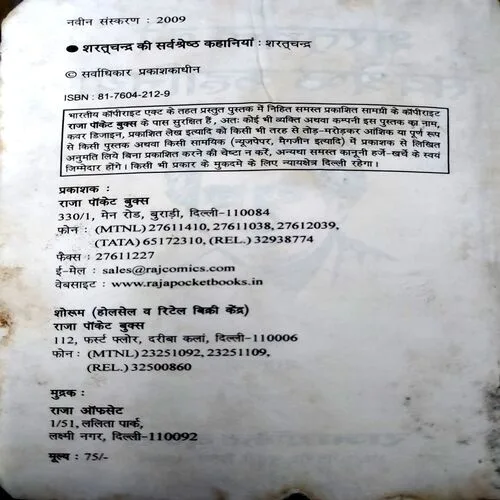 नवीन संस्करण : 2009
● शरत्‌चन्द्र की सर्वश्रेष्ठ कहानियां : शरत्‌चन्द्र
© सर्वाधिकार प्रकाशकाधीन
ISBN : 81-7604-212-9
भारतीय कॉपीराइट एक्ट के तहत प्रस्तुत पुस्तक में निहित समस्त प्रकाशित सामग्री के कॉपीराइट
राजा पॉकेट बुक्स के पास सुरक्षित हैं, अतः कोई भी व्यक्ति अथवा कम्पनी इस पुस्तक का नाम,
कवर डिजाइन, प्रकाशित लेख इत्यादि को किसी भी तरह से तोड़-मरोड़कर आंशिक या पूर्ण रूप
से किसी पुस्तक अथवा किसी सामयिक (न्यूजपेपर, मैगजीन इत्यादि) में प्रकाशक से लिखित
अनुमति लिये बिना प्रकाशित करने की चेष्टा न करें, अन्यथा समस्त कानूनी हर्जे-खर्चे के स्वयं
जिम्मेदार होंगे। किसी भी प्रकार के मुकदमे के लिए न्यायक्षेत्र दिल्ली रहेगा।
प्रकाशक :
राजा पॉकेट बुक्स
330/1, मेन रोड, बुराड़ी, दिल्ली-110084
फोन : (MTNL) 27611410, 27611038, 27612039,
(TATA) 65172310, (REL.) 32938774
फैक्स : 27611227
ई-मेल : sales@rajcomics.com
वेबसाइट : www.rajapocketbooks.in
शोरूम (होलसेल व रिटेल बिक्री केंद्र)
राजा पॉकेट बुक्स
112, फर्स्ट फ्लोर, दरीबा कलां, दिल्ली-110006
फोन : (MTNL) 23251092, 23251109,
(REL.) 32500860
मुद्रक :
राजा ऑफसेट
1/51, ललिता पार्क,
लक्ष्मी नगर, दिल्ली-110092
मूल्य : 75/-